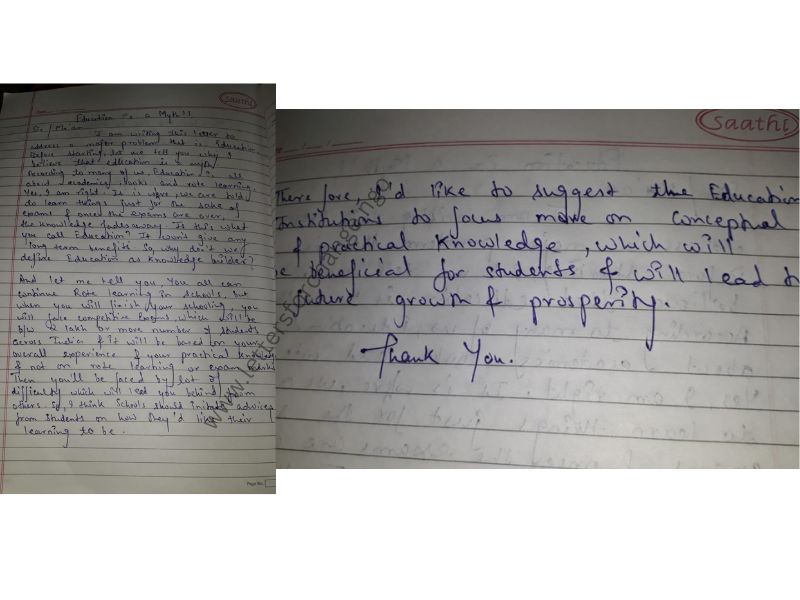 saathi
Education is a Myth!!
Sir/Ma'am
I am writing this letter to
address a major problem that is Education
Before starting, let me tell you why I
believe that education is a myth
According to many of us, Education is all
about academics, books and rote learning.
Yes, I am right. It is where we are told
to learn things just for the sake of
exams & once the exams are over,
the knowledge fades away. Is this what
you call Education? It won't give any
long term benefits so, why don't we
define Education as knowledge builder?
And let me tell you, You all can
continue Rote learning in schools, but
when you will finish your schooling, you
will face competitive Exams, which will be
b/w 2 lakh or more number of students
across India & it will be based on your
overall experience & your practical knowledge
& not on rote learning or exam
Then you'll be faced by lot of
difficulty which will lead you behind from
others. So, I think schools should initiate advices
from students on how they'd like their
learning to be.
Page No.
saathi
Therefore I'd like to suggest the Education
Institutions to focus more on conceptual
& practical knowledge, which will
be beneficial for students & will lead to
future growth & prosperity.
Thank You.